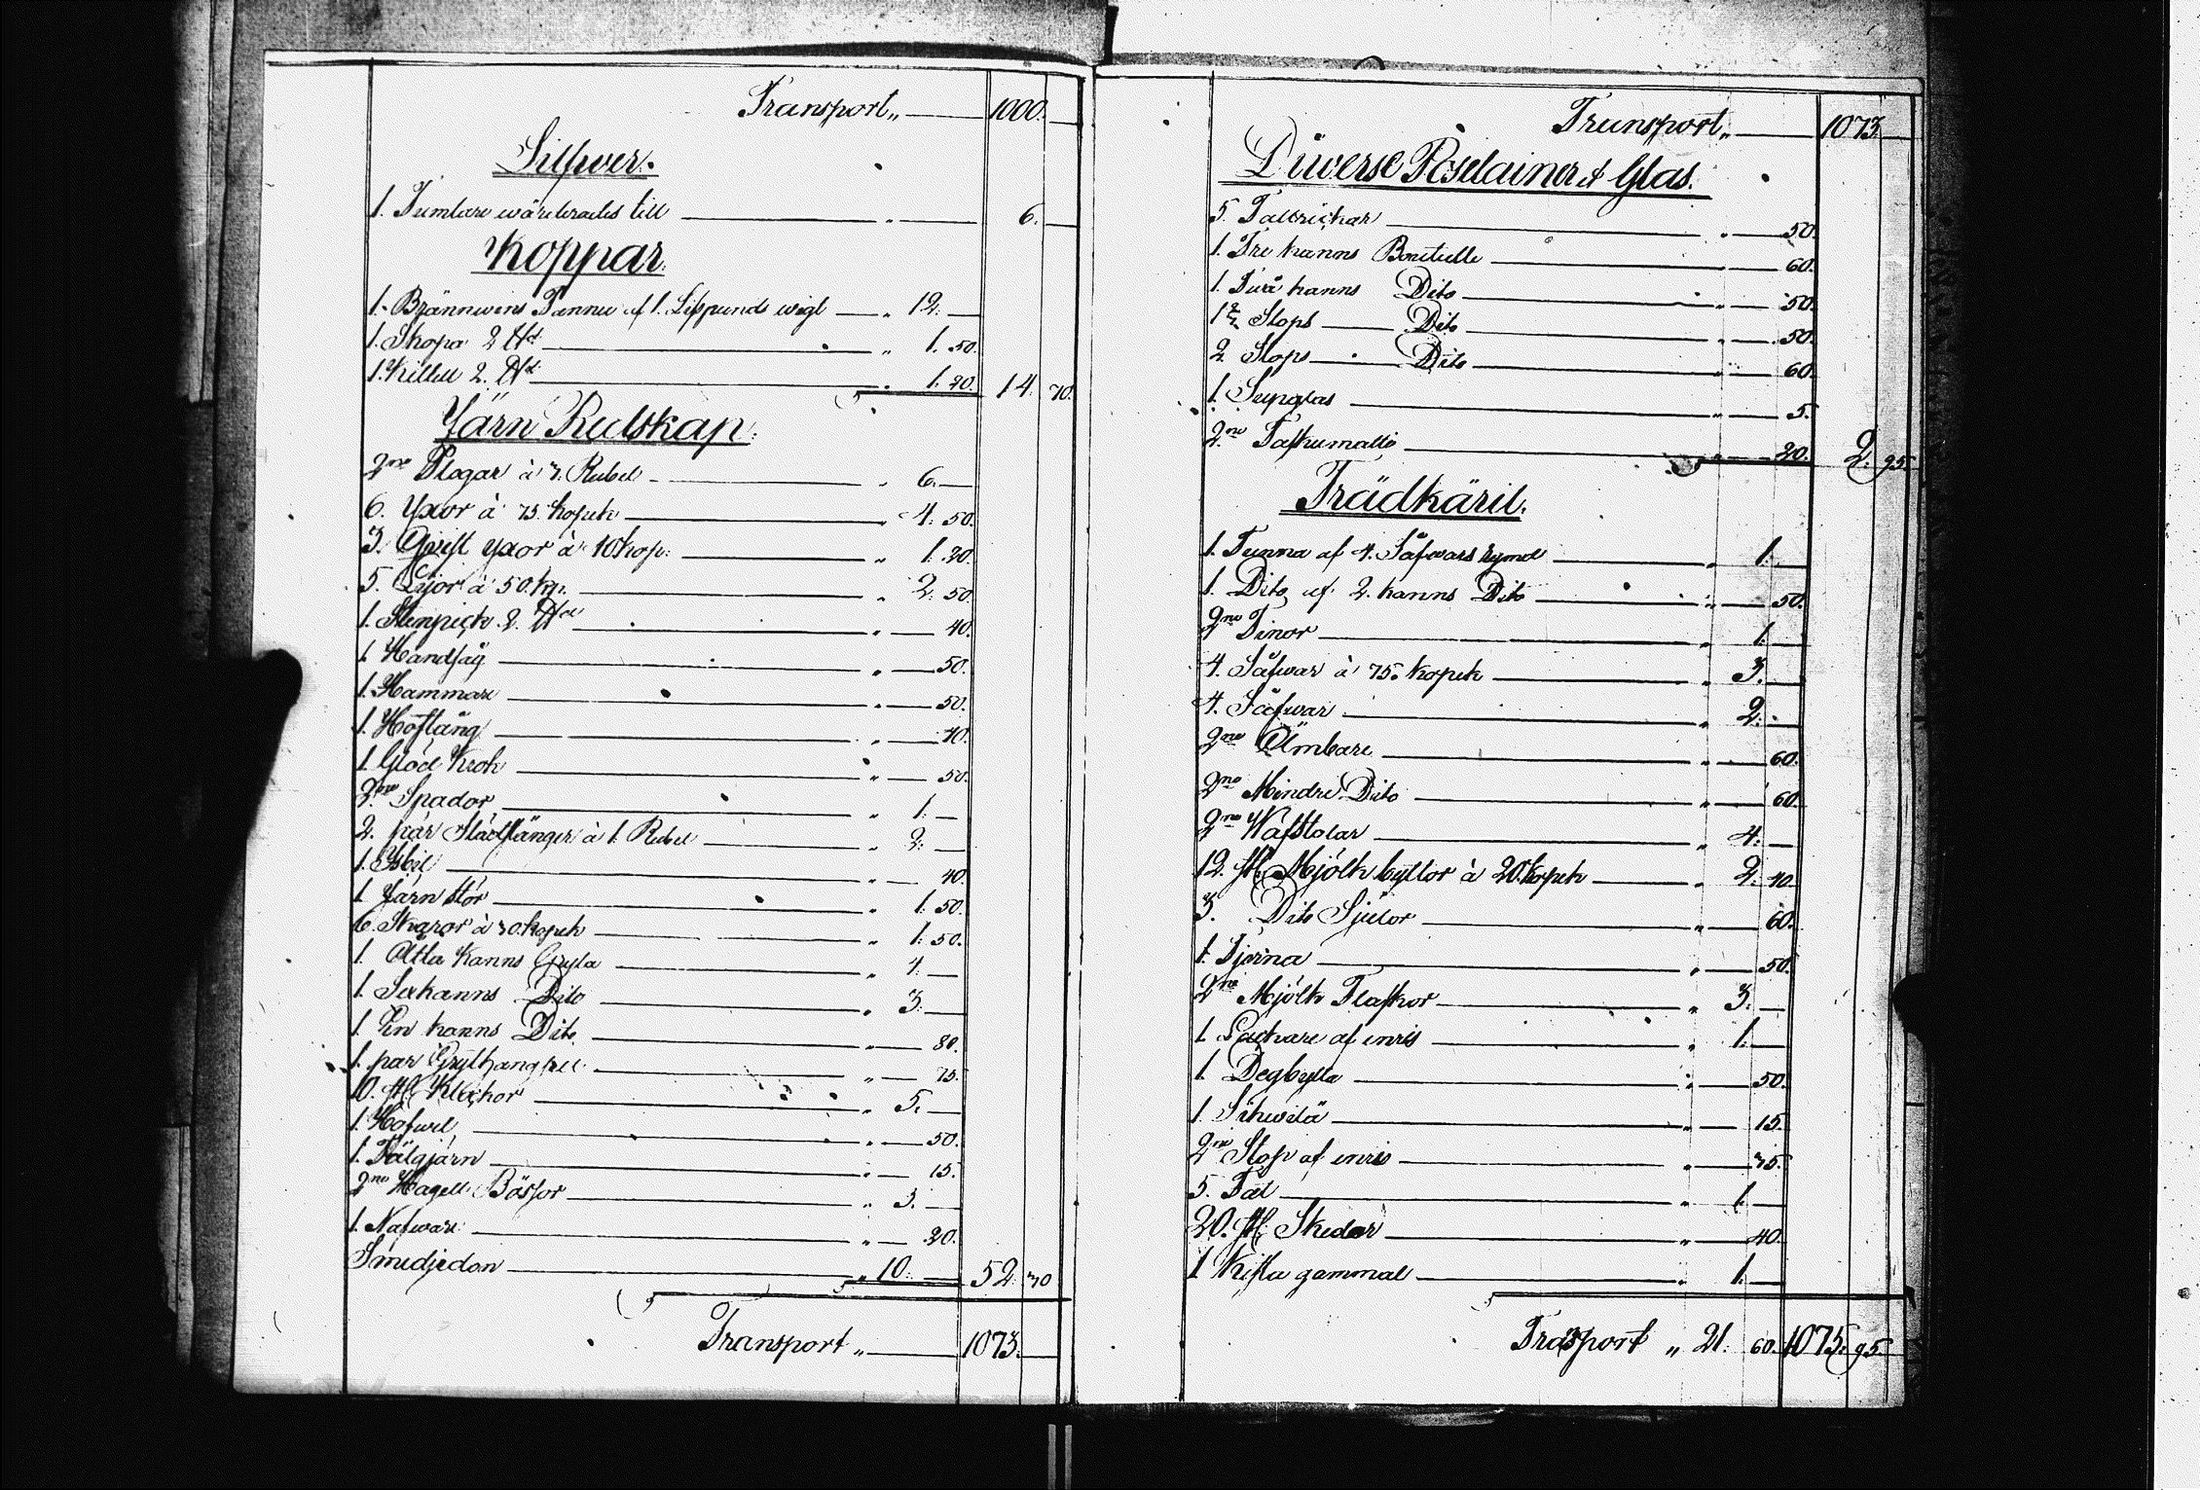 Transport „ — 1000. —
Silfwer.
1. Tumlare wärderades till — „ — 6. —
Koppar.
1. Brännwins Panna af 1. Lispunds wigt — „ 12. —
1. Skopa 2 ℔d — „ 1. 50.
1. Kittell 2. ℔d — „ 1. 20. 14. 70.
Järn Redskap.
2ne Plogar à 3. Rubel — „ 6. —
6. Yxor à 75. kopek — „ 4. 50.
3. yxor à 40 kop: — „ 1. 20.
5. Lijor à 50. kp. — „ 2. 50.
1. Stenpick 2. ℔d — „ — 40.
1. Handsåg — „ — 50.
1. Hammare — „ — 50.
1. Hoftång — „ — 40.
1. Glöd Krok — „ — 50.
2ne Spador — „ 1. —
2. par Städstänger à 1. Rubel — „ 2. —
1. Isbil — „ — 40.
1. Järn Stör — „ 1. 50.
6. Skaror à 30. kopek — „ 1. 50.
1. Åtta Kanns Gryta — „ 4. —
1. Sexkanns Dito — „ 3. —
1. En kanns Dito — „ — 80.
1. par — „ — 75.
10. st Klockor — „ 5. —
1. Hofwel — „ — 50.
1. Täligjärn — „ — 15.
2ne Hagell Bössor — „ 3. —
1. Nafware — „ — 20.
Smidjedon — „ 10. — 52. 30
Transport „ — 1073. —
Transport „ — 1073. —
Diwerse Poselainer et Glas.
5. Tallrickar — „ — 50.
1. Tre kanns Boutielle — „ — 60.
1. Twå kanns Dito — „ — 50.
1½ Stops — Dito — „ — 50.
2 Stops — Dito — „ — 60.
1. Supglas — „ — 5.
2ne — „ — 20. 2. 95.
Trädkäril.
1. Tunna af 4. Såfwars rymd — „ 1. —
1. Dito af 2. kanns Dito — „ — 50.
2ne Tinor — „ 1. —
4. Såfwar à 75. kopek — „ 3. —
4. Såfwar — „ 2. —
2ne Ämbare — „ — 60.
2ne Mindre Dito — „ — 60.
2ne Wäfstolar — „ 4. —
12. st Mjölk byttor à 20. kopek — „ 2. 40.
3. Dito Sjulor — „ — 60.
1. Tjerna — „ — 50.
2ne Mjölk Flaskor — „ 3. —
1. af enris — „ 1. —
1. Degbytta — „ — 50.
1. — „ — 15.
2ne Stop af enris — „ — 75.
5. Fat — „ 1. —
20. st Skedar — „ — 40.
1 Kista gammal — „ 1. —
Trasport „ 21. 60. 1075. 95.